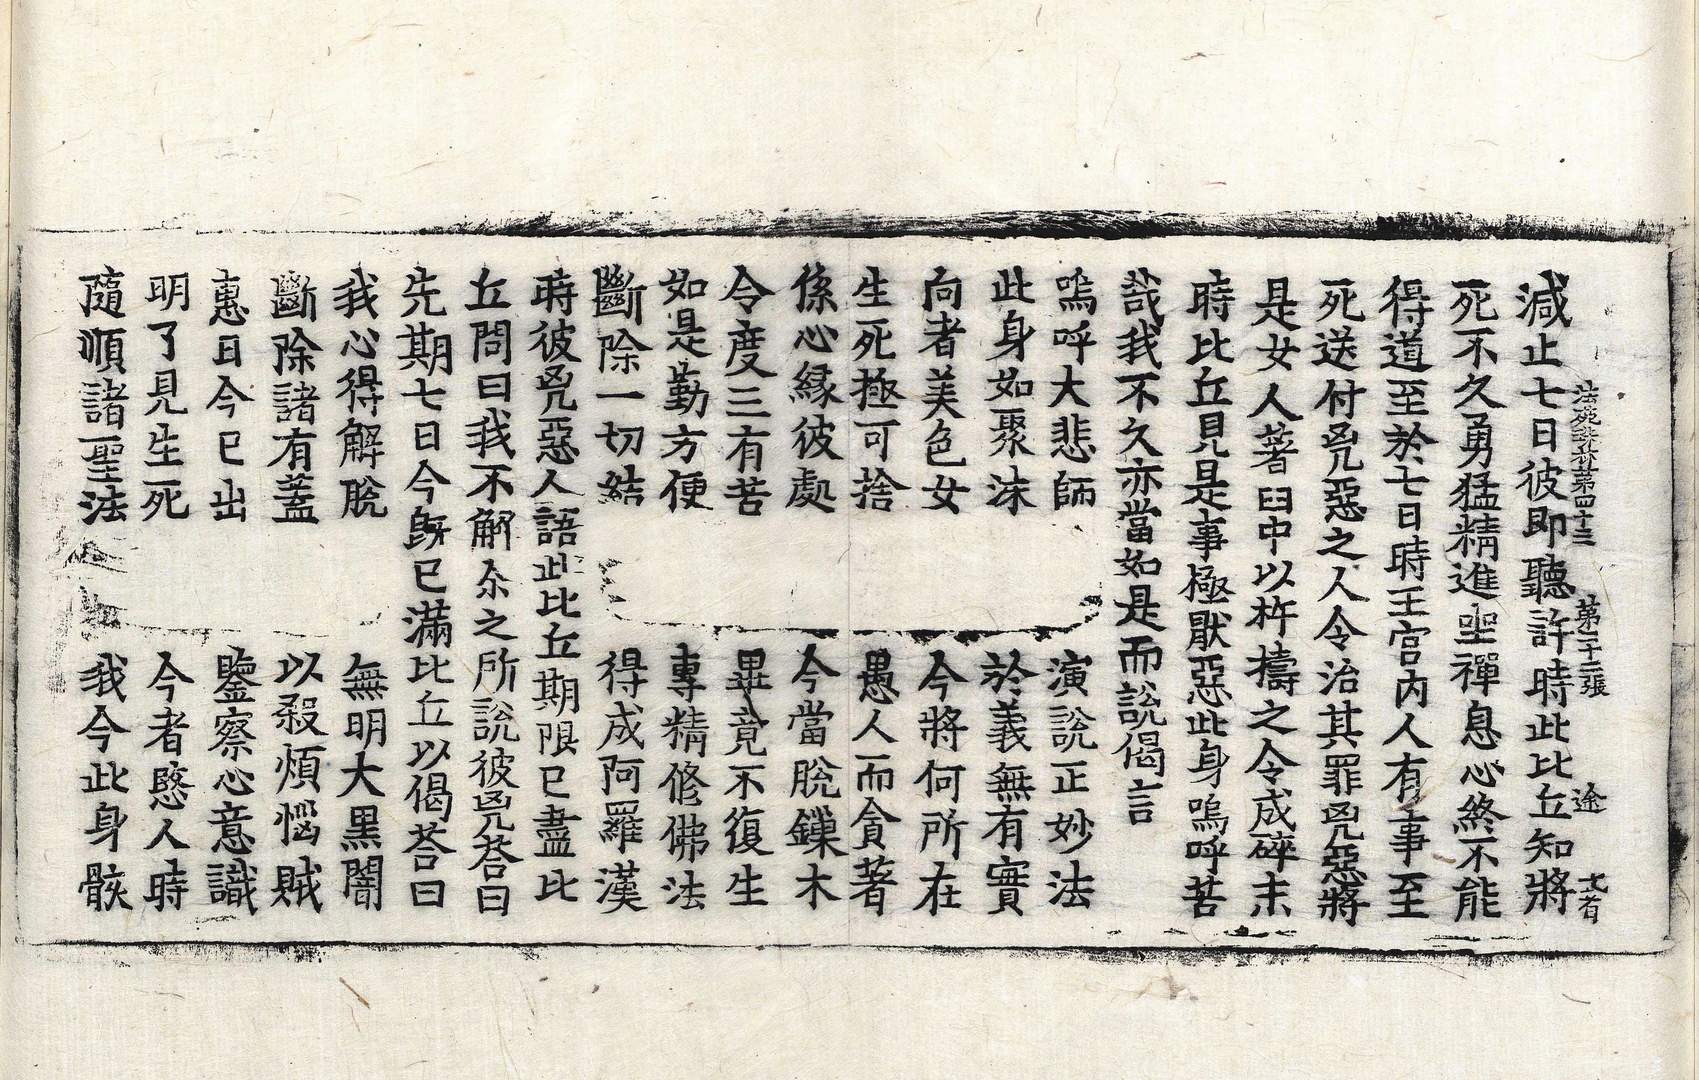 法苑珠林第四十三 途
減止七日彼即聽許時此比丘知將
死不久勇猛精進坐禪息心終不能
得道至於七日時王宮內人有事至
死送付兇惡之人令治其罪兇惡將
是女人著臼中以杵擣之令成碎末
時比丘見是事極猒惡此身嗚呼苦
哉我不久亦當如是而說偈言
嗚呼大悲師 演說正妙法
此身如聚沫 於義無有實
向者美色女 今將何所在
生死極可捨 愚人而貪著
係心緣彼處 今當脫鏁木
令度三有苦 畢竟不復生
如是勤方便 專精修佛法
斷除一切結 得成阿羅漢
時彼兇惡人語此比丘期限已盡比
丘問曰我不解尒之所說彼兇荅曰
先期七日今既已滿比丘以偈荅曰
我心得解脫 無明大黑闇
斷除諸有蓋 以殺煩惱賊
惠日今已出 鑒察心意識
明了見生死 今者愍人時
隨順諸聖法 我今此身骸